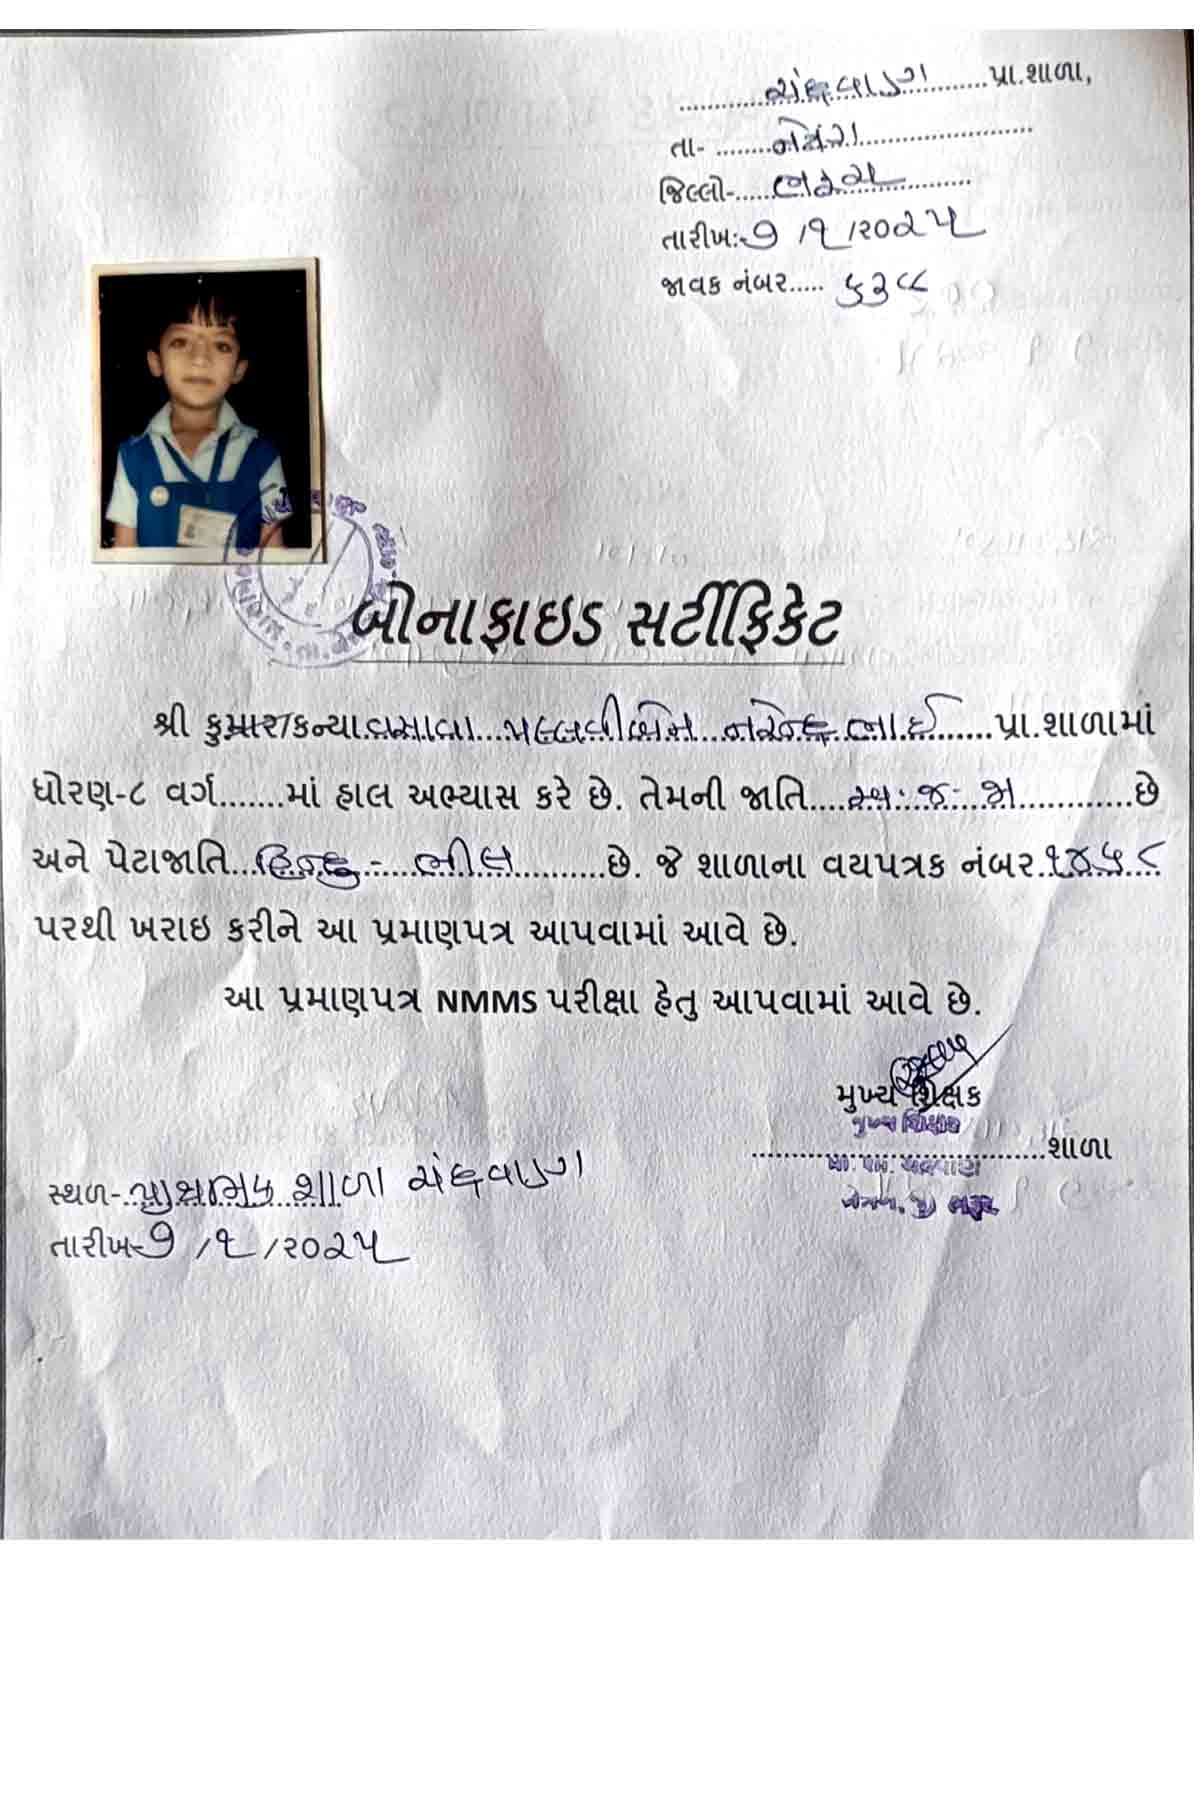 ચંદ્રવાણ પ્રા.શાળા,
તા- નેત્રંગ
જિલ્લો- ભરૂચ
તારીખ:- ૭ /૧ /૨૦૨૫
જાવક નંબર..... ૬૩૮
બોનાફાઇડ સર્ટીફિકેટ
શ્રી કુમાર/કન્યા વસાવા પલ્લવીબેન નરેન્દ્રભાઈ પ્રા.શાળામાં
ધોરણ-૮ વર્ગ.......માં હાલ અભ્યાસ કરે છે. તેમની જાતિ અ.જ.જા છે
અને પેટાજાતિ હિન્દુ - ભીલ છે. જે શાળાના વયપત્રક નંબર ૧૪૫૮
પરથી ખરાઇ કરીને આ પ્રમાણપત્ર આપવામાં આવે છે.
આ પ્રમાણપત્ર NMMS પરીક્ષા હેતુ આપવામાં આવે છે.
મુખ્ય શિક્ષક
મુખ્ય શિક્ષક
શાળા
પ્રા. શા. ચંદ્રવાણ
જી. ભરૂચ
સ્થળ- પ્રાથમિક શાળા ચંદ્રવાણ
તારીખ- ૭ /૧ /૨૦૨૫